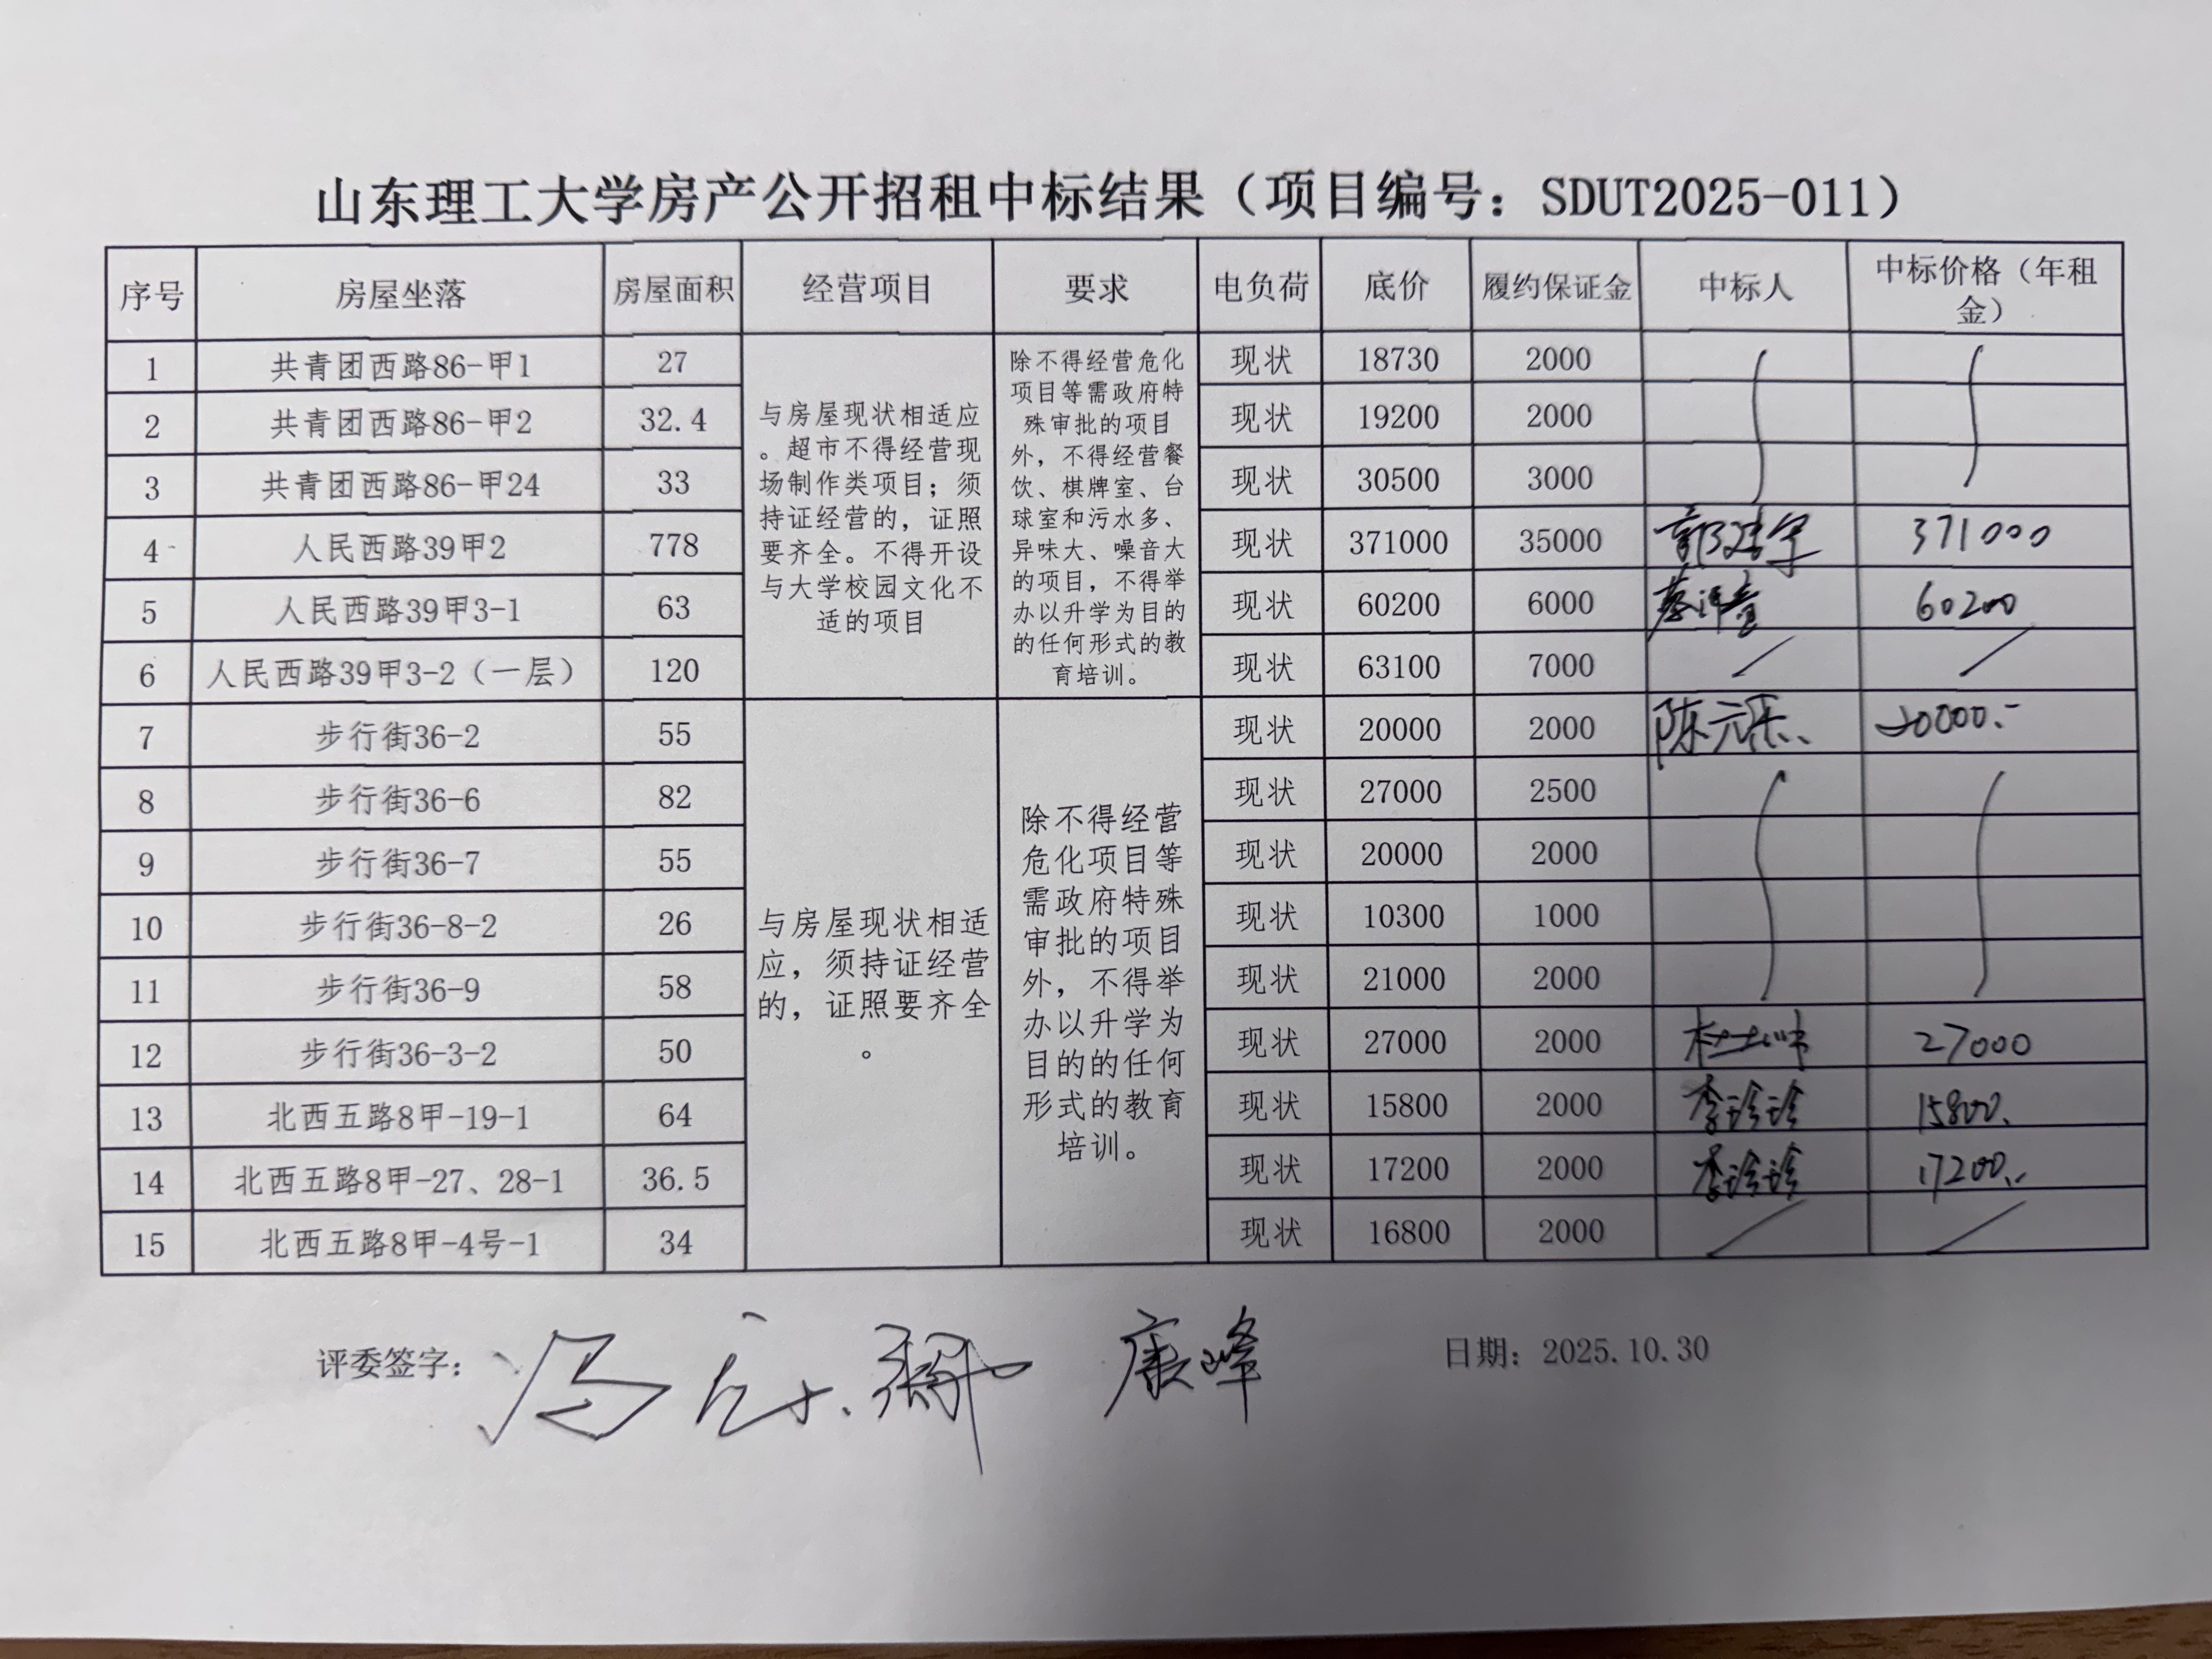 山东理工大学房产公开招租中标结果（项目编号：SDUT2025-011）
序号 房屋坐落 房屋面积 经营项目 要求 电负荷 底价 履约保证金 中标人 中标价格（年租
金）
1 共青团西路86-甲1 27 现状 18730 2000
2 共青团西路86-甲2 32.4 现状 19200 2000
3 共青团西路86-甲24 33 现状 30500 3000
4 人民西路39甲2 778 现状 371000 35000 371000
5 人民西路39甲3-1 63 现状 60200 6000 60200
6 人民西路39甲3-2（一层） 120 现状 63100 7000
与房屋现状相适应
。超市不得经营现
场制作类项目；须
持证经营的，证照
要齐全。不得开设
与大学校园文化不
适的项目
除不得经营危化
项目等需政府特
殊审批的项目
外，不得经营餐
饮、棋牌室、台
球室和污水多、
异味大、噪音大
的项目，不得举
办以升学为目的
的任何形式的教
育培训。
7 步行街36-2 55 现状 20000 2000 陈元乐 20000.-
8 步行街36-6 82 现状 27000 2500
9 步行街36-7 55 现状 20000 2000
10 步行街36-8-2 26 现状 10300 1000
11 步行街36-9 58 现状 21000 2000
12 步行街36-3-2 50 现状 27000 2000 27000
13 北西五路8甲-19-1 64 现状 15800 2000 李珍珍 15800.
14 北西五路8甲-27、28-1 36.5 现状 17200 2000 李珍珍 17200.-
15 北西五路8甲-4号-1 34 现状 16800 2000
与房屋现状相适
应，须持证经营
的，证照要齐全
。
除不得经营
危化项目等
需政府特殊
审批的项目
外，不得举
办以升学为
目的的任何
形式的教育
培训。
评委签字： 康峰 日期：2025.10.30